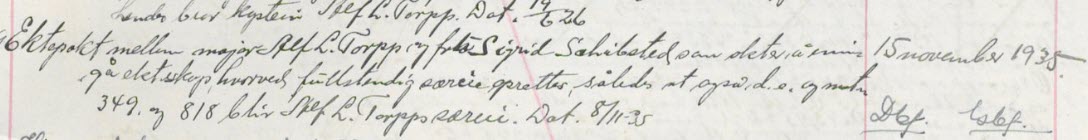 hendes bror kaptein Alf L. Torpp. Dat. 19/6 26
Ektepakt mellem major Alf L. Torpp og frk Sigrid Schibsted som akter å inngå 15 november 1935.
ekteskap, hvorved fullstendig særeie oprettes, således at også d. e. og matr.
349. og 818 blir Alf L. Torpps særeie. Dat. 8/11-35 Dbf. Esbf.